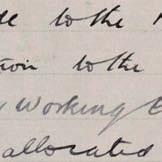 to the
to the
Working
allocated